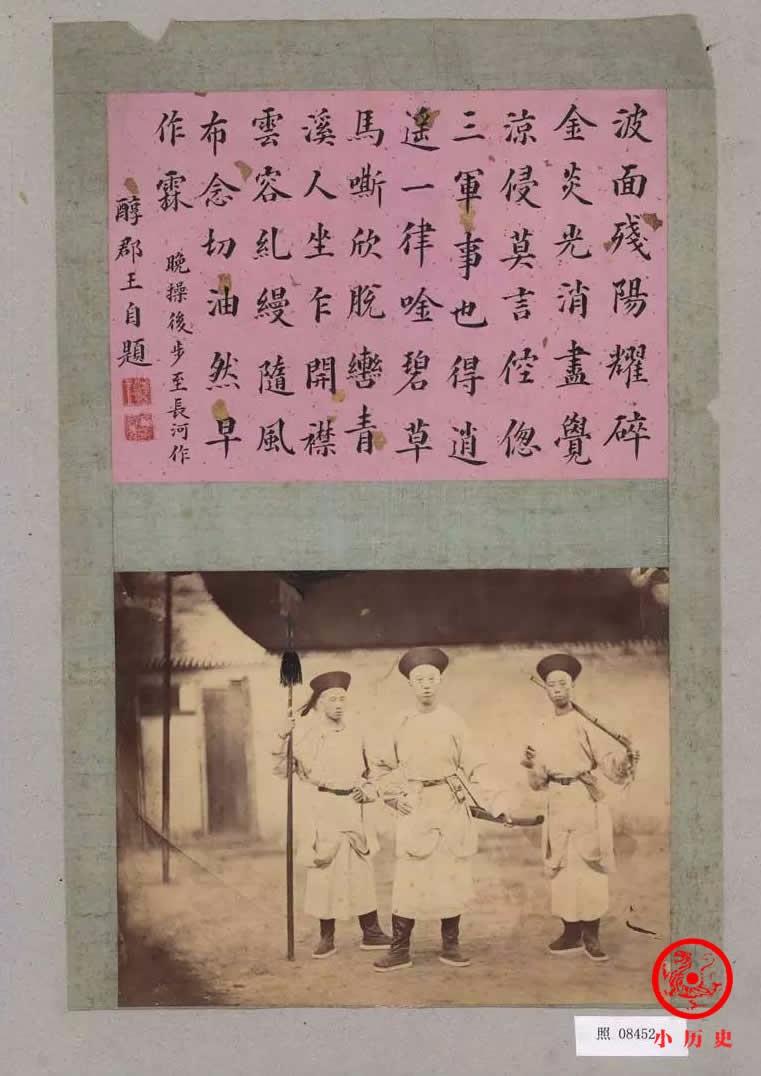 波面殘陽耀碎
金炎光消盡覺
涼侵莫言倥偬
三軍事也得逍
遙一律唫碧草
馬嘶欣脫轡青
溪人坐乍開襟
雲容糺縵隨風
布念切油然早
作霖
晚操後步至長河作
醇郡王自題
照 08452
小历史